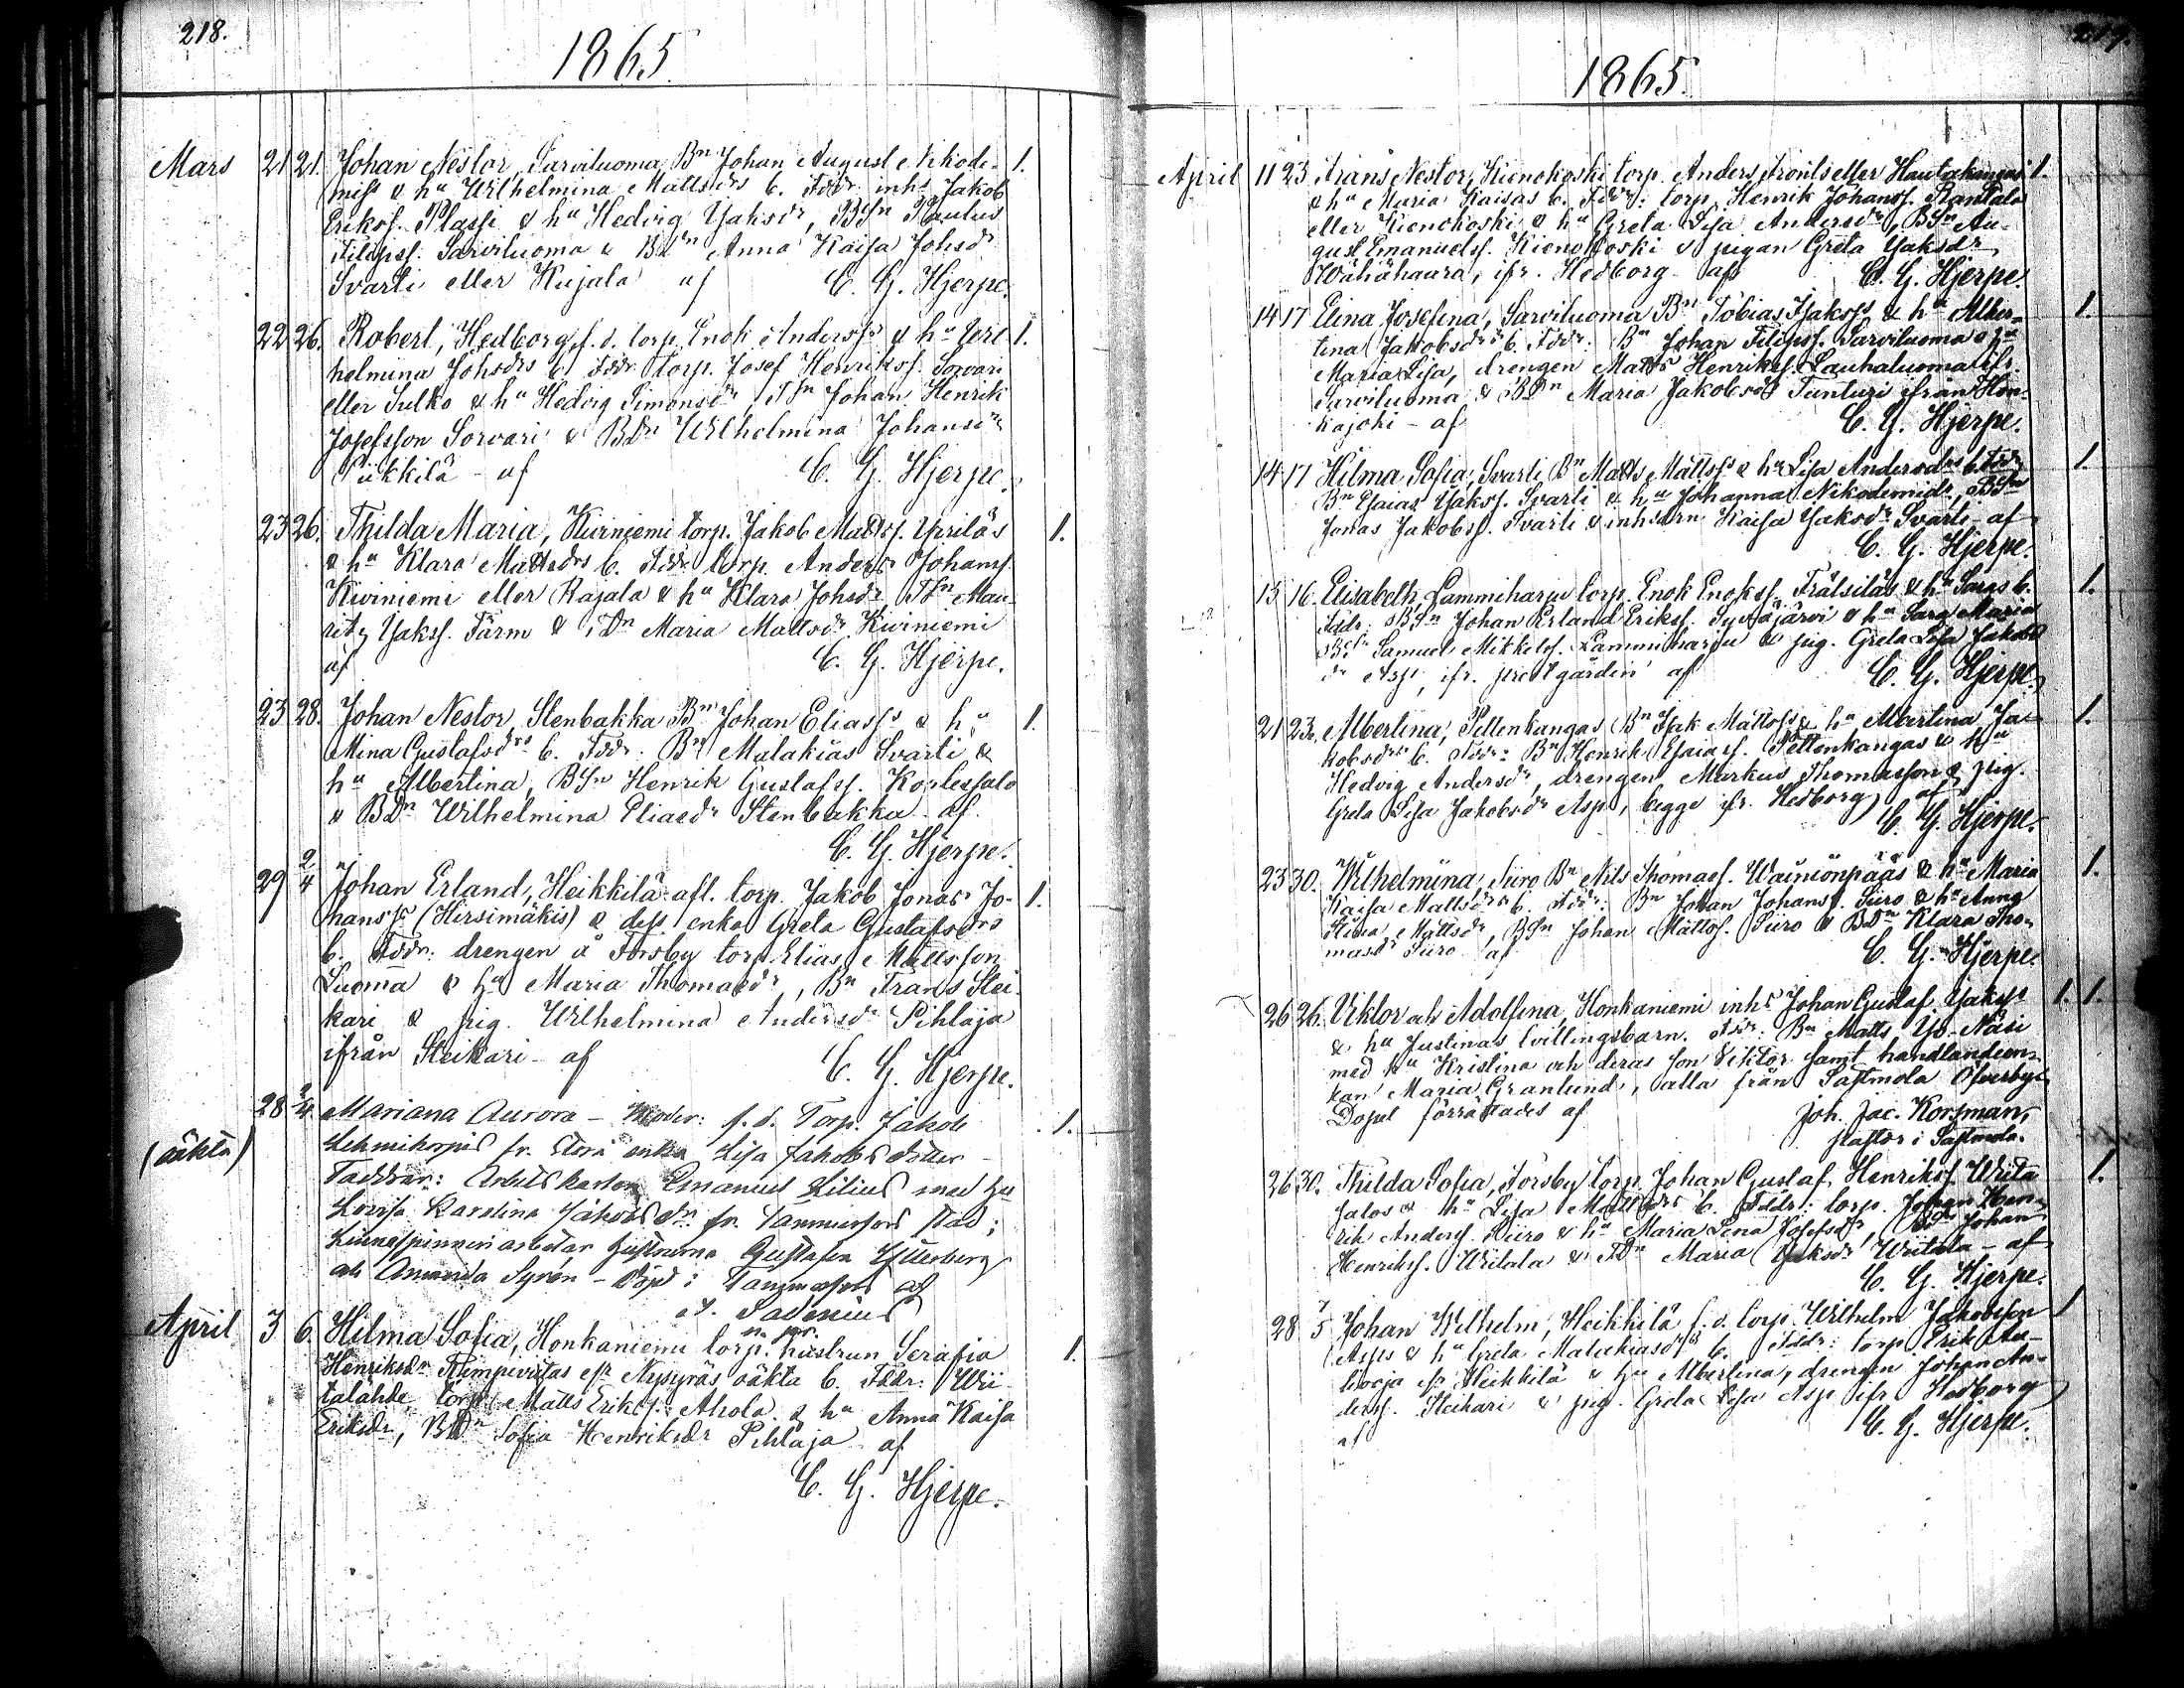 218.
1865.
Mars 21 21. Johan Nestor, Sarviluoma Bn Johan August Nikode- 1.
miss & hu Wilhelmina Mattsdrs b. Fddr. inhs Jakob
Erikss. Plassi & hu Hedvig Isaksdr, BSn Paulus
Filipss. Sarviluoma & BDn Anna Kaisa Johsdr
Svarti eller Kujala af C. G. Hjerpe.
22 26. Robert, Hedborg, f. d. torp. Enok Anderss & hu Wil- 1.
helmina Johsdrs b. Fddr. torp. Josef Henrikss. Sorvari
eller Sulko & hu Hedvig Simonsdr, TSn Johan Henrik
Josefsson Sorvari & BDn Wilhelmina Johansdr
Pukkila - af C. G. Hjerpe.
23 26. Thilda Maria, Kiviniemi torp. Jakob Mattss. Yrriläs 1.
& hu Klara Mattsdrs b. Fddr. torp. Anders Johanss.
Kiviniemi eller Rajala & hu Klara Johsdr, TSn Mau-
ritz Isakss. Färm & TDn Maria Mattsdr Kiviniemi
af C. G. Hjerpe.
23 28. Johan Nestor, Stenbakka Bn Johan Eliass & hu 1.
Mina Gustafsdrs b. Fddr. Bn Malakias Svarti &
hu Albertina, BSn Henrik Gustafss. Kortessalo
& BDn Wilhelmina Eliasdr Stenbakka af
C. G. Hjerpe.
29 2/4 Johan Erland, Heikkilä afl. torp. Jakob Jonas Jo- 1.
hanss (Hirsimäkis) & dess enka Greta Gustafsdrs
b. Fddr. drengen å Forsby torp Elias Mattsson
Luoma & hu Maria Thomasdr, Bn Frans Stei-
kari & pig. Wilhelmina Andersdr Pihlaja
ifrån Steikari - af C. G. Hjerpe.
28 2/4 Mariana Aurora - Moder: f. d. Torp. Jakob 1.
(oäkta) Lehmikorpis fr. Storå enka Lisa Jakobsdotter -
Faddrar: Arbetskarlen Emanuel Lilius med hu
Lovisa Karolina Jakobsdr fr. Tammerfors stad;
Linnespinneriarbetar hustrurna Gustafva Ytterberg
och Amanda Syrén - Döpt i Tammerfors af
Sadenius
April 3 6. Hilma Sofia, Honkaniemi torp. hustrun Serafia 1.
Henriksdr oäkta b. Fddr. Wii-
talähde, torp. Matts Erikss. Ahola & hu Anna Kaisa
Eriksdr, BDn Sofia Henriksdr Pihlaja af
C. G. Hjerpe.
1865.
April 11 23 Frans Nestor, Kienokoski torp. Anders Antills eller Hautakangas 1.
& hu Maria Kaisas b. Fddr: torp. Henrik Johanss. Rantala
eller Kienokoski & hu Greta Lisa Andersdr, BSn Au-
gust Emanuelss. Kienokoski & pigan Greta Isaksdr
Wähähaara, ifr. Hedborg af C. G. Hjerpe.
14 17 Elina Josefina, Sarviluoma Bn Tobias Isakss & hu Alber- 1.
tina Jakobsdrs b. Fddr: Bn Johan Filipss. Sarviluoma & hu
Maria Lisa, drengen Matts Henrikss. Lauhaluoma ifr.
Sarviluoma & BDn Maria Jakobsdr Tunturi ifrån Hon-
kajoki - af C. G. Hjerpe.
14 17 Hilma Sofia, Svarti, Bn Matts Mattss & hu Lisa Andersdrs b. Fddr. 1.
Bn Esaias Isakss. Svarti & hu Johanna Nikodemidr, BSn
Jonas Jakobss. Svarti & inhsdrn Kaisa Isaksdr Svarti - af
C. G. Hjerpe.
15 16. Elisabeth, Lammiharju torp. Enok Enokss. Frälsiläs & hu Saras b. 1.
Fddr. BSn Johan Erland Erikss. Syväjärvi & hu Sara Maria
BSn Samuel Mikkelss. Lammiharju & pig. Greta Lisa Jakobs
dr Asp, ifr. prestgården af C. G. Hjerpe.
21 23. Albertina, Pettenkangas Bn Isak Mattss & hu Albertina Ja- 1.
kobsdrs b. Fddr: Bn Henrik Esaiass. Pettenkangas & hu
Hedvig Andersdr, drengen Markus Thomasson & pig.
Greta Lisa Jakobsdr Asp, begge ifr. Hedborg, af
C. G. Hjerpe.
23 30. Wilhelmina, Siiro Bn Nils Thomass. Wäiniönpääs & hu Maria 1.
Kaisa Mattsdrs b. Fddr: Bn Johan Johanss. Siiro & hu Anna
Stina Mattsdr, BSn Johan Mattss. Siiro & BDn Klara Tho-
masdr Siiro af C. G. Hjerpe.
26 26. Viktor och Adolfina, Honkaniemi inhs Johan Gustaf Isakss 1. 1.
& hu Justinas tvillingsbarn. Fddr: Bn Matts Yli-Näsi
med hu Kristina och deras son Viktor samt handlandeen-
kan Maria Granlund, alla från Sastmola Öfverby
Dopet förrättades af Joh. Jac. Korsman,
pastor i Sastmola.
26 30. Thilda Sofia, Forsby torp. Johan Gustaf Henrikss. Wiita- 1.
salos & hu Lisa Mattsdrs b. Fddr: torp. Johan Hen-
rik Anderss. Siiro & hu Maria Lena Josefsdr, Johan
Henrikss. Wiitala & TDn Maria Isaksdr Wiitala - af
C. G. Hjerpe.
28 7/5 Johan Wilhelm, Heikkilä f. d. torp. Wilhelm Jakobsson 1
Asps & hu Greta Malakiasdrs b. Fddr: torp Erik
ifr Heikkilä & hu Albertina, drengen Johan An-
derss. Steikari & pig. Greta Lisa Asp ifr Hedborg
af C. G. Hjerpe.